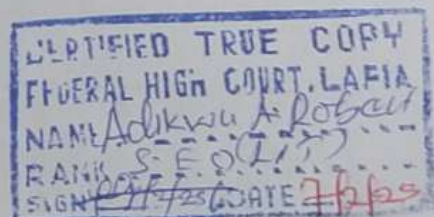 CERTIFIED TRUE COPY
FEDERAL HIGH COURT, LAFIA
NAME Adikwu A. Robert
RANK S.E.O (LIT)
SIGN DATE 7/2/25